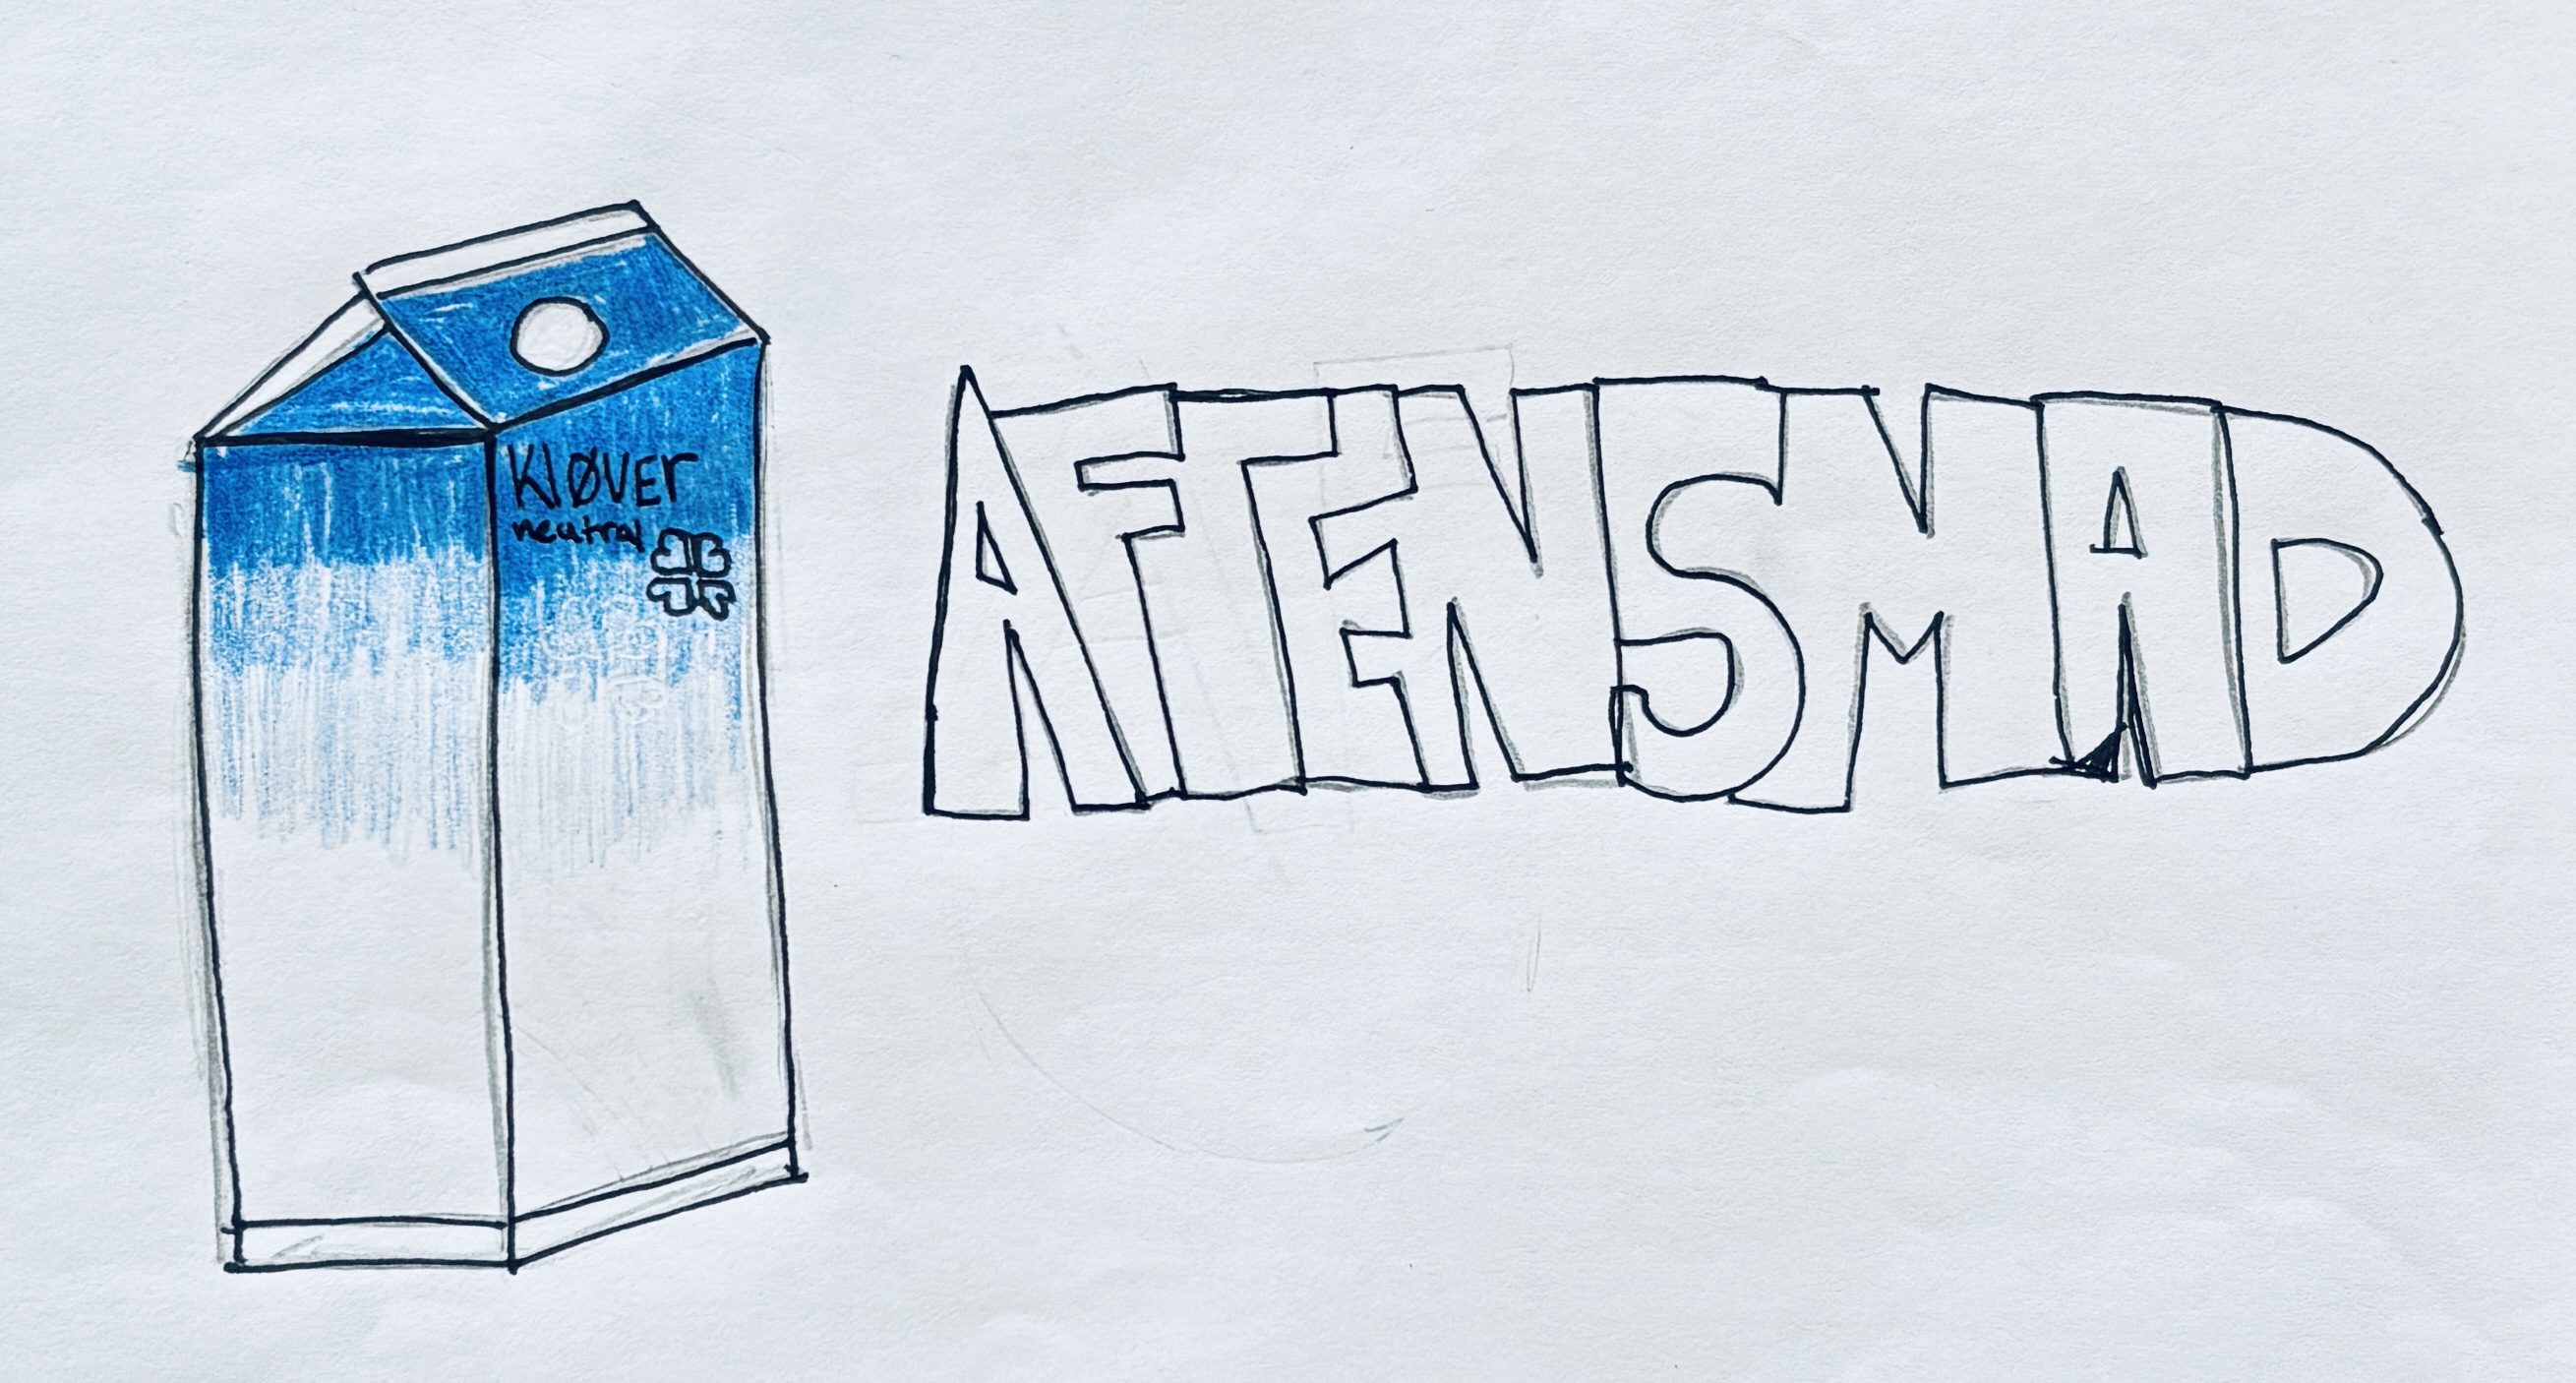 Kløver
neutral
AFTENSMAD